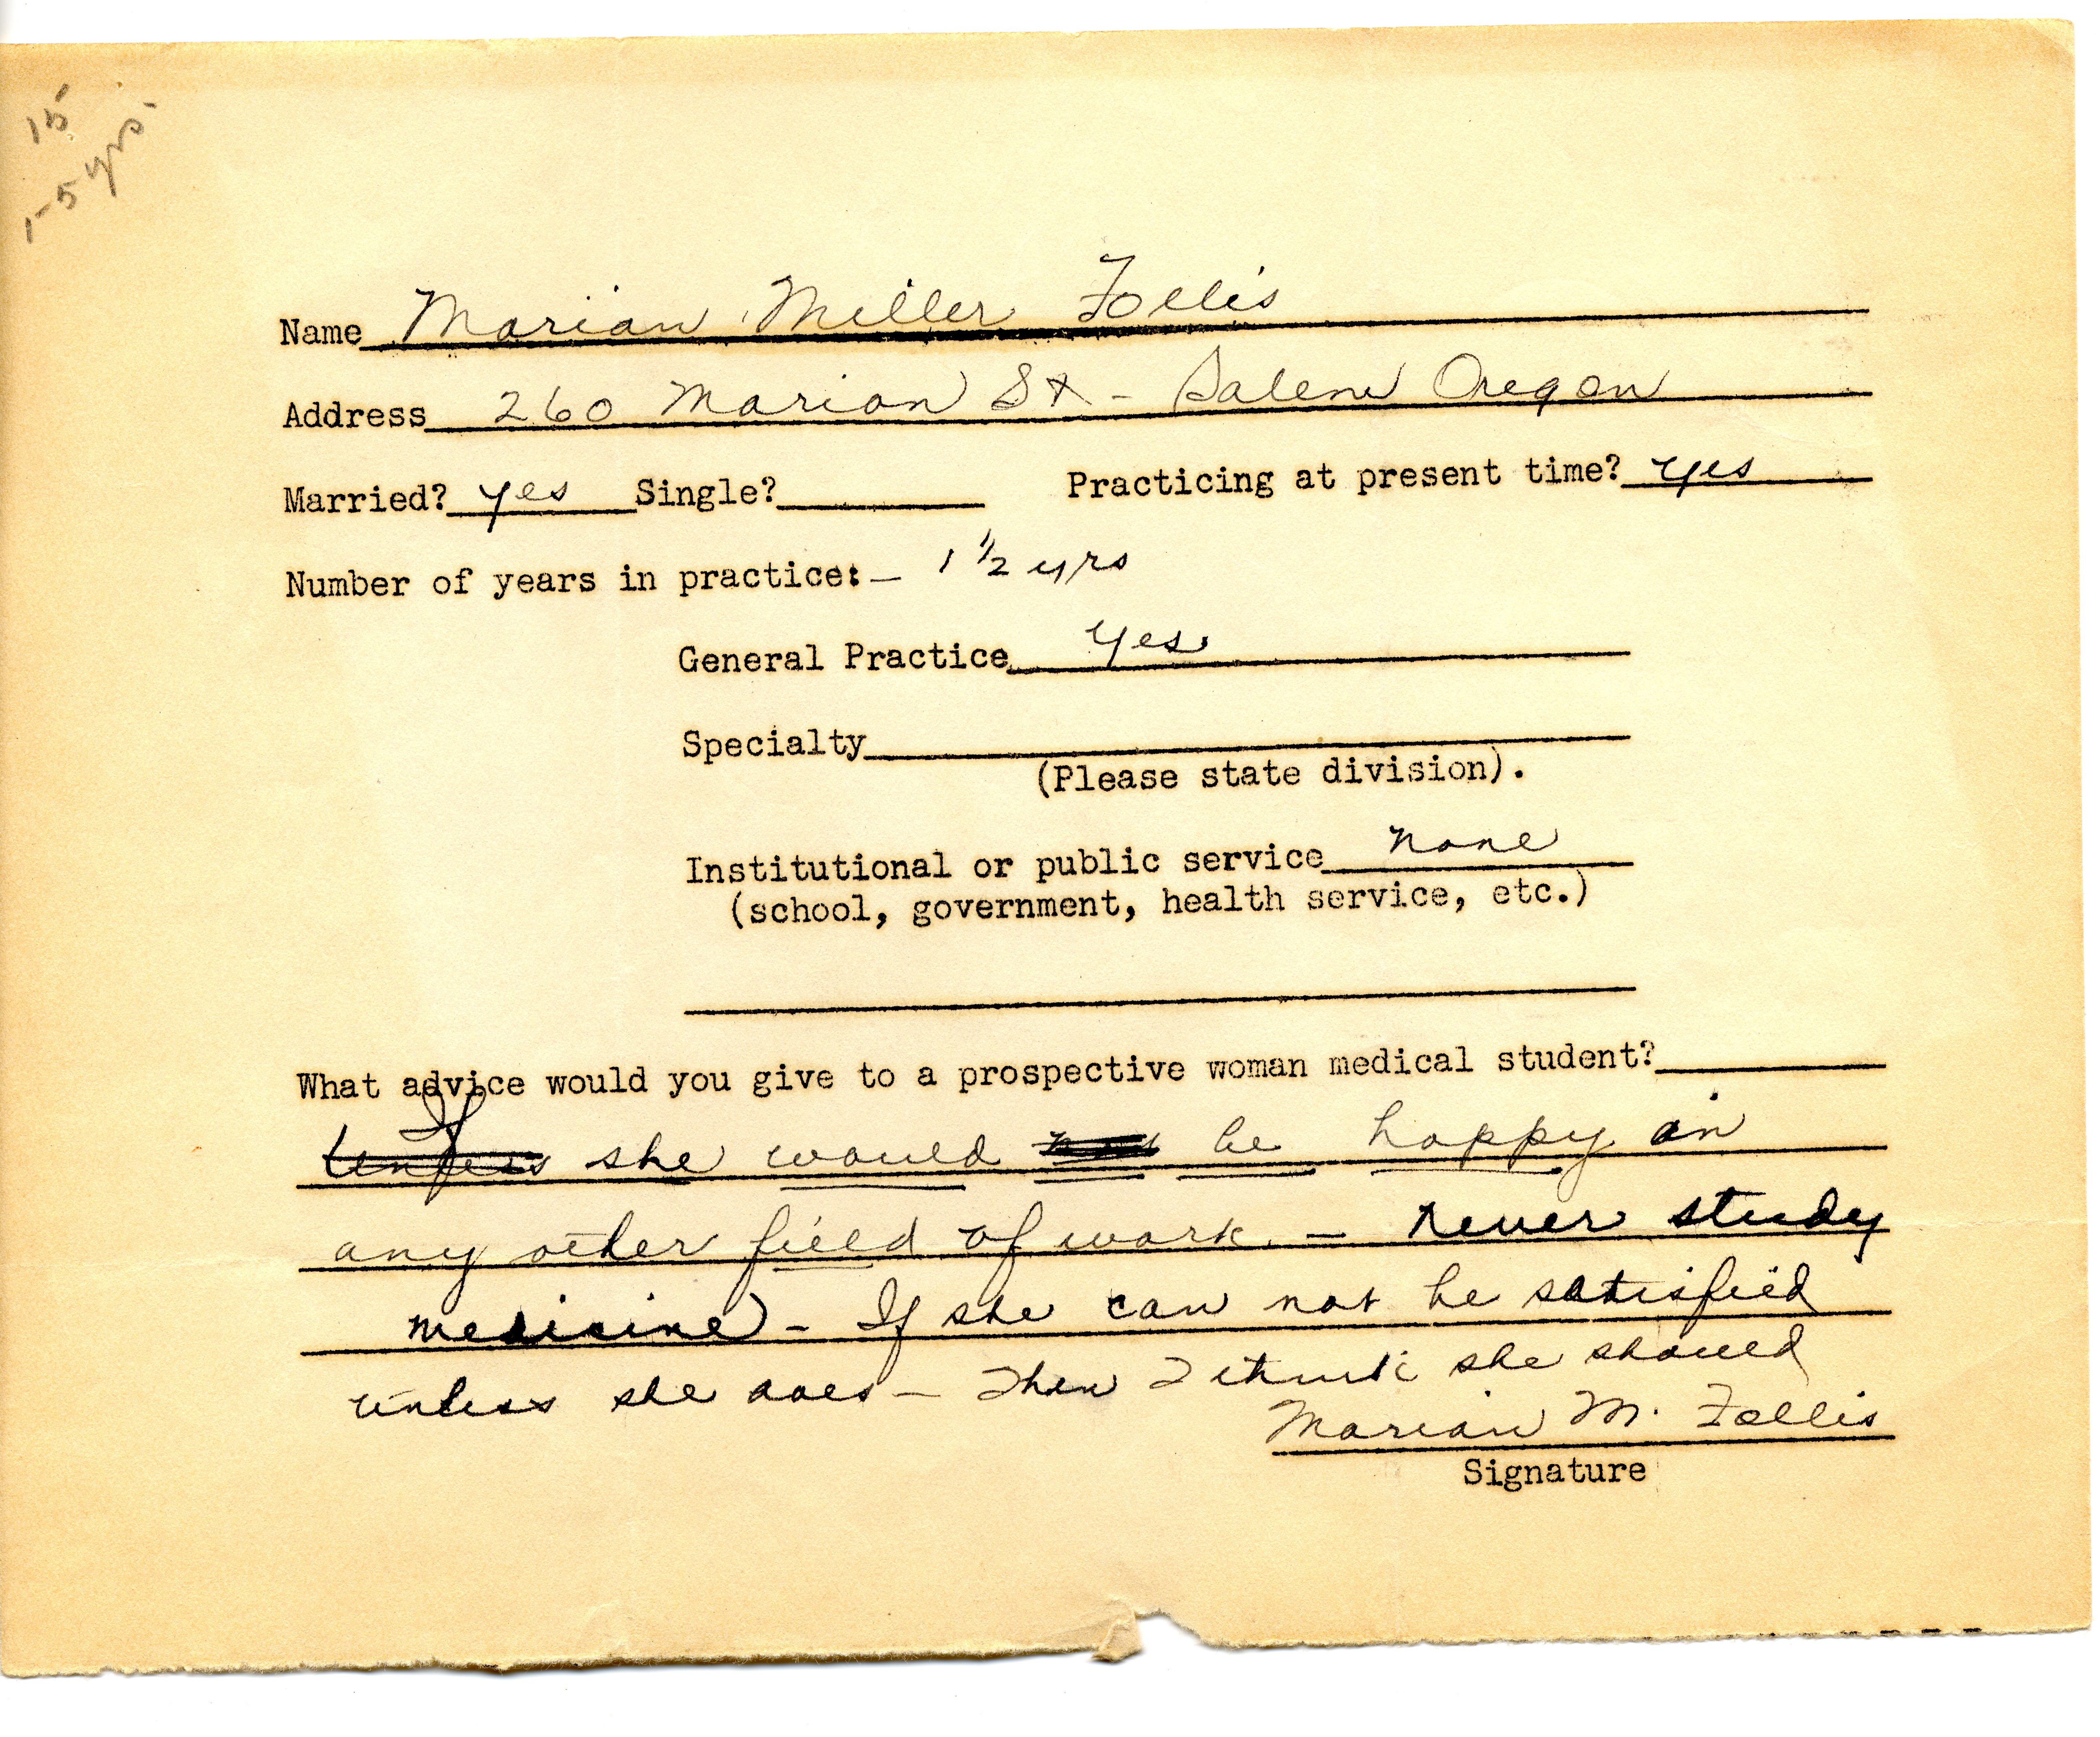 15
1-5 yrs.
Name Marian Miller Follis
Address 260 Marion St - Salem Oregon
Married? yes Single? Practicing at present time? yes
Number of years in practice:- 1 1/2 yrs
General Practice yes
Specialty
(Please state division).
Institutional or public service none
(school, government, health service, etc.)
What advice would you give to a prospective woman medical student?
If she would be happy in
any other field of work. - never study
medicine - If she can not be satisfied
unless she does - Then I think she should
Marian M. Follis
Signature